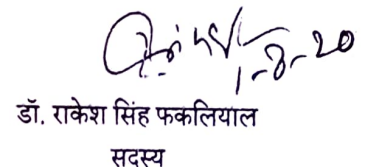 1-8-20
डॉ. राकेश सिंह फकलियाल
सदस्य